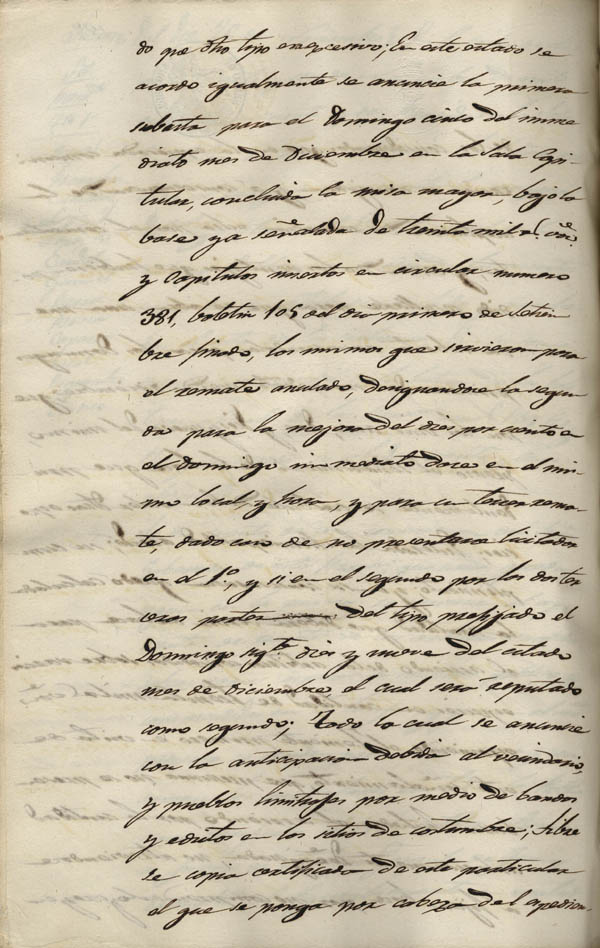 do que dho tipo era excesivo; En este estado se
acordo igualmente se anuncie la primera
subasta para el Domingo cinco del inme
diato mes de Diciembre en la Sala Capi-
tular, concluida la misa mayor, bajo la
base ya señalada de treinta mil r.s von.
y Capitulos insertos en circular numero
381, boletin 105 del dia primero de Setiem
bre finado, los mismos que sirvieron para
el remate anulado, designandose la segun
da para la mejora del dies por ciento en
el Domingo inmediato doce en el mis
mo local, y hora, y para un tercer rema-
te, dado caso de no presentarse licitador
en el 1º, y si en el segundo por las dos ter
ceras partes del tipo prefijado el
Domingo sigte dies y nueve del citado
mes de Diciembre, el cual será reputado
como segundo; Todo lo cual se anuncie
con la anticipacion debida al vecindario,
y pueblos limitrofes por medio de bandos
y edictos en los sitios de costumbre; Libre
se copia certificada de este particular
el que se ponga por cabeza del espedien-